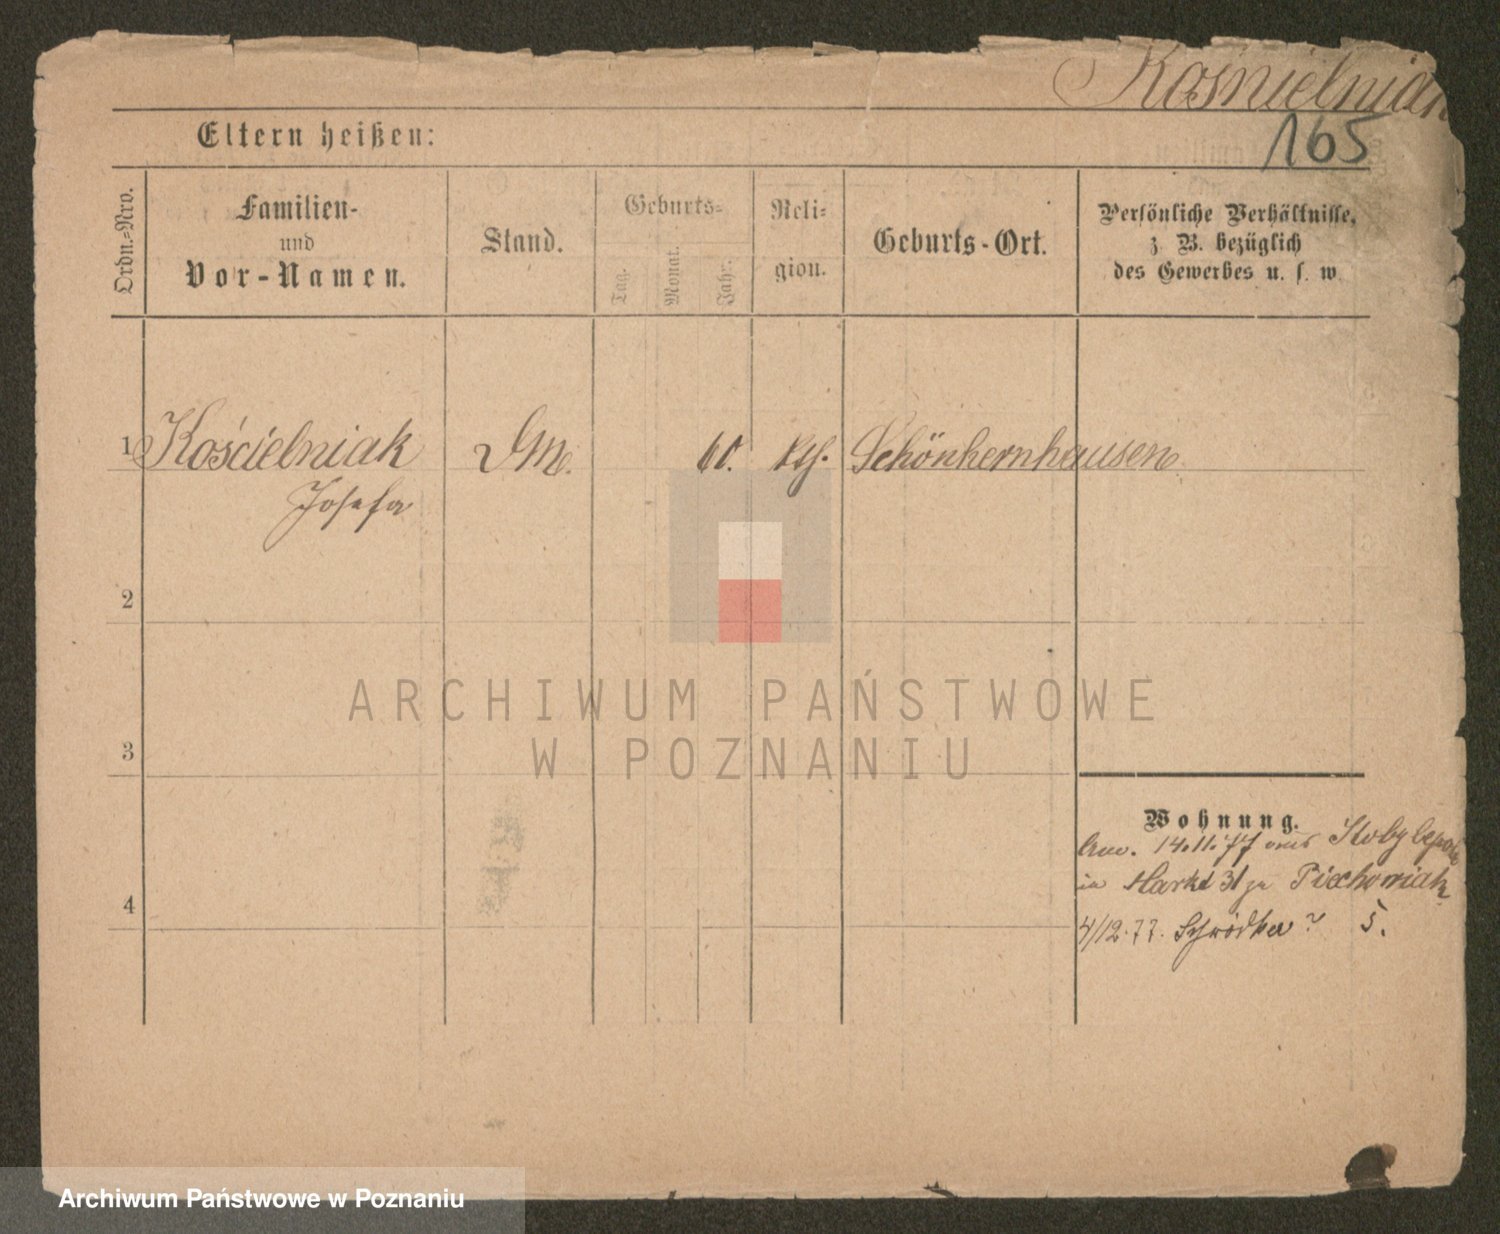 Kośnielniak
165
Eltern heißen:
Ordn.-Nro.
Familien-
und
Vor-Namen.
Stand.
Geburts-
Tag.
Monat.
Jahr.
Reli-
gion.
Geburts-Ort.
Persönliche Verhältnisse,
z. B. bezüglich
des Gewerbes u. s. w.
1 Kościelniak DM. 60. kth. Schönhernhausen
Josefa
2
3
4
Wohnung.
14.11.77 aus Kobylepole
in Markt 31 zu Piechowiak
4/12.77. Schrodka 5.
ARCHIWUM PAŃSTWOWE
W POZNANIU
Archiwum Państwowe w Poznaniu